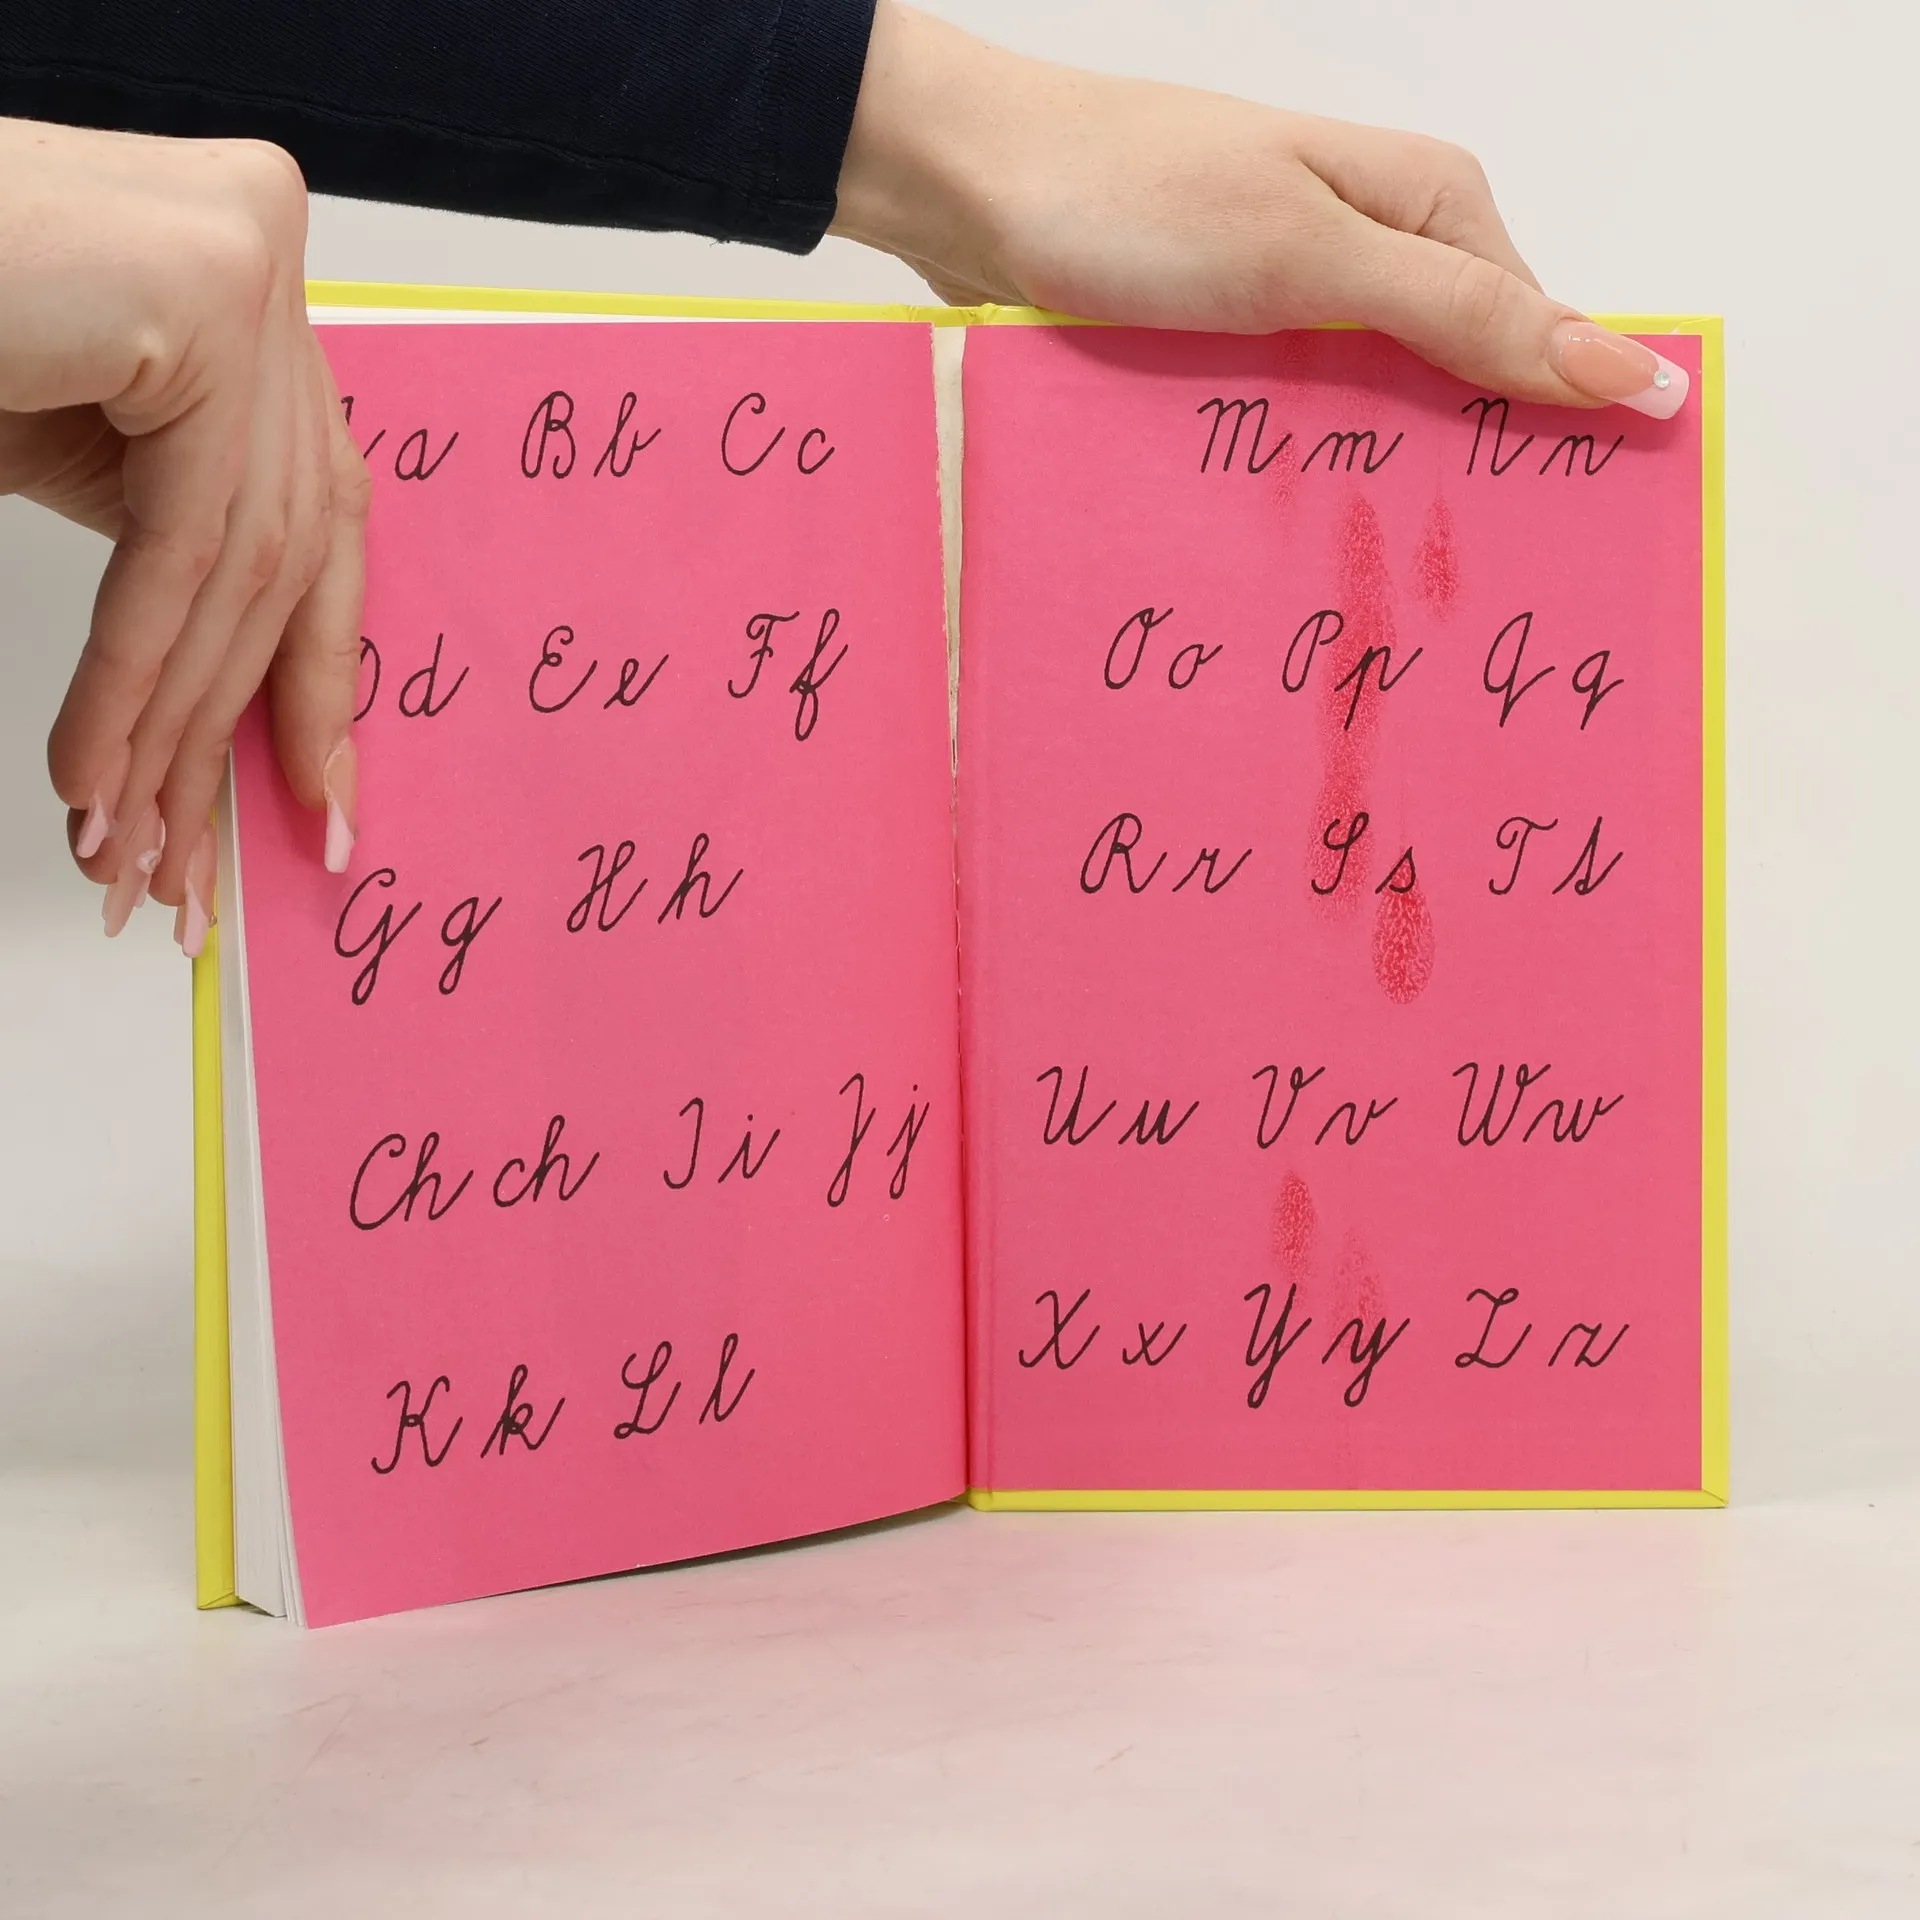 a Bb Cc
Dd Ee Ff
Gg Hh
Ch ch Ii Jj
Kk Ll
Mm Nn
Oo Pp Qq
Rr Ss Tt
Uu Vv Ww
Xx Yy Zz